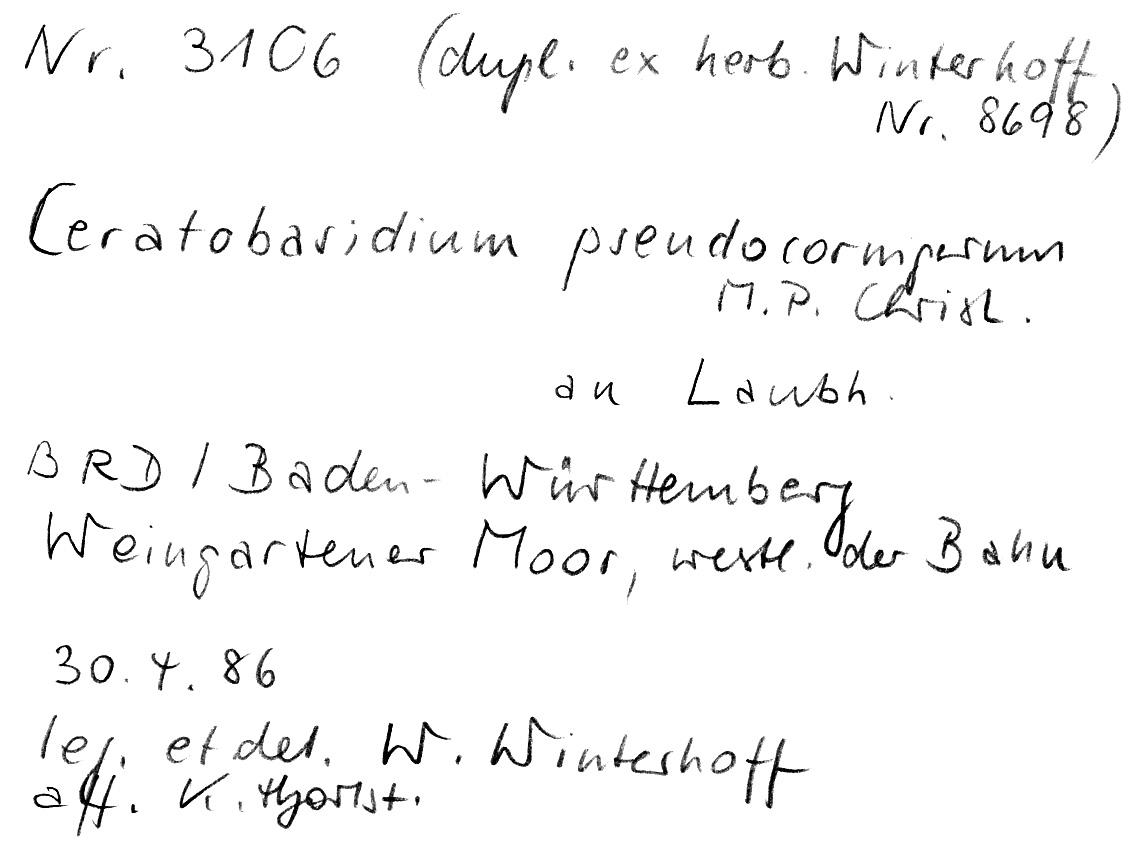 Nr. 3106 (dupl. ex herb. Winterhoff
Nr. 8698)
Ceratobasidium pseudocornigerum
M.P. Christ.
an Laubh.
BRD / Baden-Württemberg
Weingartener Moor, westl. der Bahn
30.4.86
leg. et det. W. Winterhoff
aff. K. Hjortst.